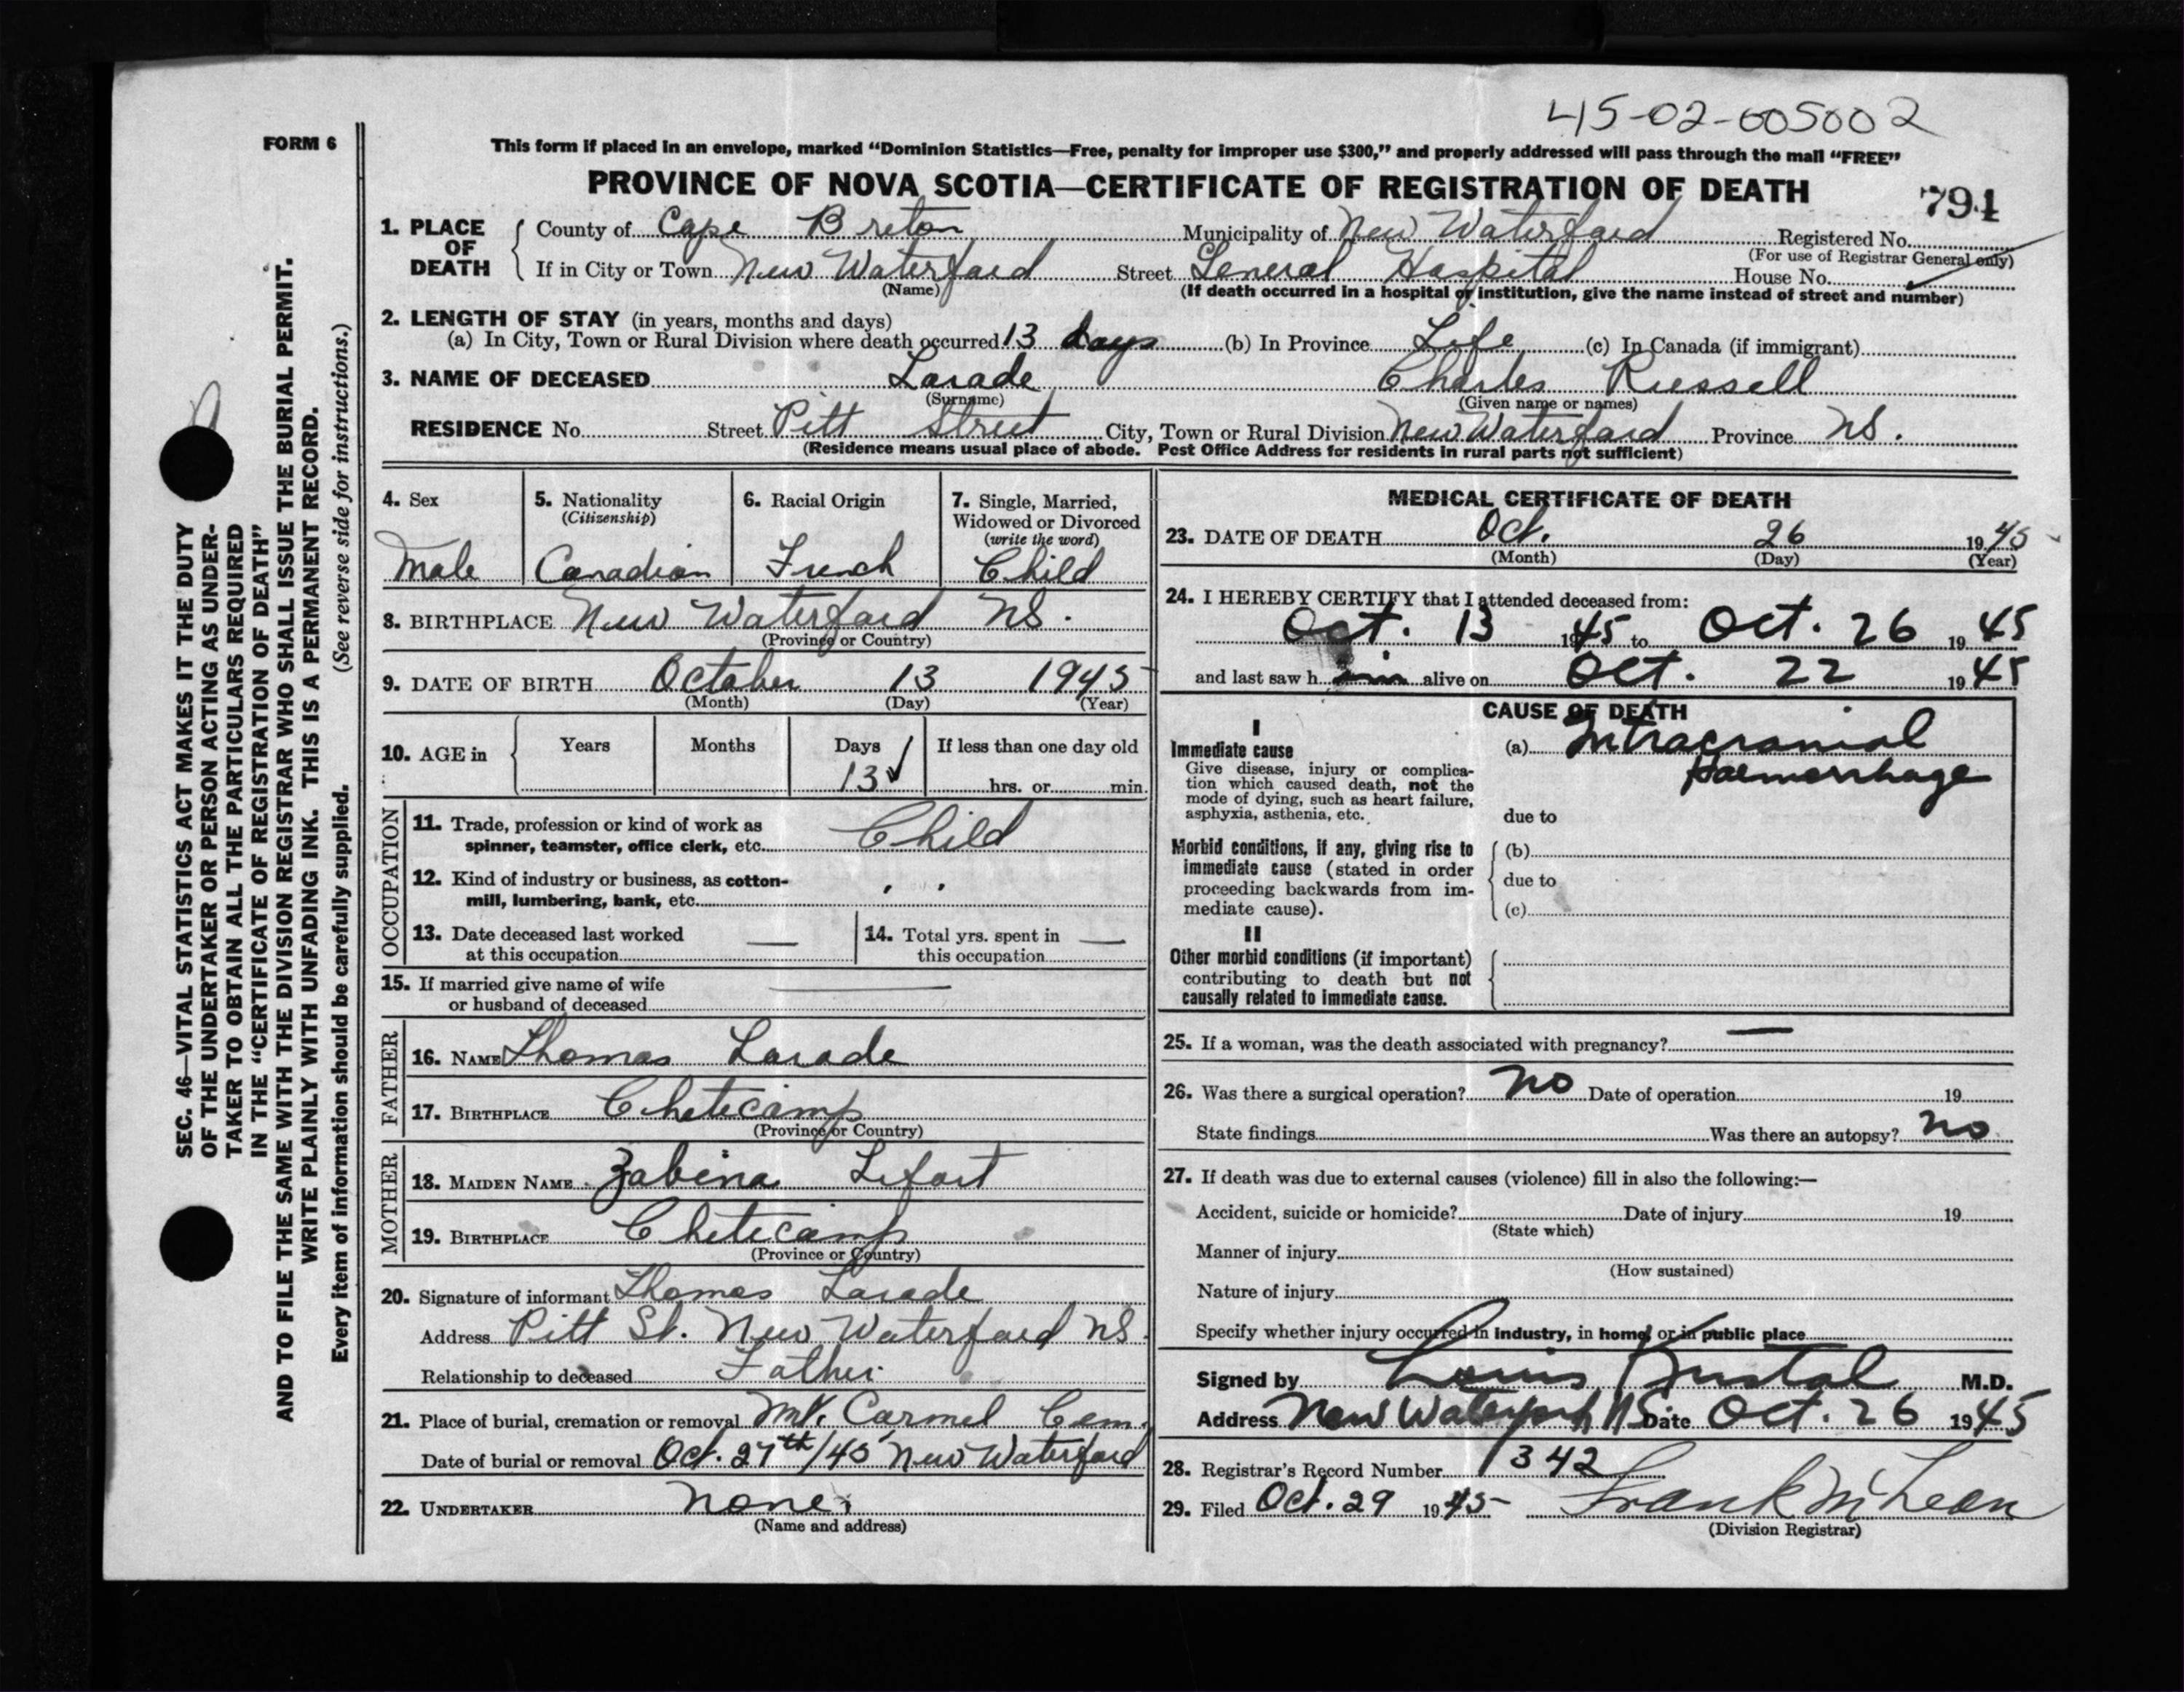 45-02-005002
FORM 6
This form if placed in an envelope, marked “Dominion Statistics—Free, penalty for improper use $300,” and properly addressed will pass through the mail “FREE”
PROVINCE OF NOVA SCOTIA—CERTIFICATE OF REGISTRATION OF DEATH
794
1. PLACE OF DEATH
County of Cape Breton Municipality of New Waterford Registered No.
(For use of Registrar General only)
If in City or Town New Waterford Street General Hospital House No.
(Name) (If death occurred in a hospital or institution, give the name instead of street and number)
2. LENGTH OF STAY (in years, months and days)
(a) In City, Town or Rural Division where death occurred 13 days (b) In Province Life (c) In Canada (if immigrant)
3. NAME OF DECEASED Larade Charles Russell
(Surname) (Given name or names)
RESIDENCE No. Street Pitt Street City, Town or Rural Division New Waterford Province NS.
(Residence means usual place of abode. Post Office Address for residents in rural parts not sufficient)
4. Sex
Male
5. Nationality
(Citizenship)
Canadian
6. Racial Origin
French
7. Single, Married,
Widowed or Divorced
(write the word)
Child
8. BIRTHPLACE New Waterford NS.
(Province or Country)
9. DATE OF BIRTH October 13 1945
(Month) (Day) (Year)
10. AGE in
Years Months Days If less than one day old
13 hrs. or min.
OCCUPATION
11. Trade, profession or kind of work as
spinner, teamster, office clerk, etc. Child
12. Kind of industry or business, as cotton-
mill, lumbering, bank, etc. " "
13. Date deceased last worked
at this occupation —
14. Total yrs. spent in
this occupation —
15. If married give name of wife
or husband of deceased —
FATHER
16. NAME Thomas Larade
17. BIRTHPLACE Chetecamp
(Province or Country)
MOTHER
18. MAIDEN NAME Zabina Lefort
19. BIRTHPLACE Chetecamp
(Province or Country)
20. Signature of informant Thomas Larade
Address Pitt St. New Waterford NS.
Relationship to deceased Father
21. Place of burial, cremation or removal Mt. Carmel Cem.
Date of burial or removal Oct. 27th/45 New Waterford
22. UNDERTAKER none
(Name and address)
MEDICAL CERTIFICATE OF DEATH
23. DATE OF DEATH Oct. 26 1945
(Month) (Day) (Year)
24. I HEREBY CERTIFY that I attended deceased from:
Oct. 13 1945 to Oct. 26 1945
and last saw him alive on Oct. 22 1945
CAUSE OF DEATH
I
Immediate cause
Give disease, injury or complica-
tion which caused death, not the
mode of dying, such as heart failure,
asphyxia, asthenia, etc.
(a) Intracranial
Haemorrhage
due to
Morbid conditions, if any, giving rise to
immediate cause (stated in order
proceeding backwards from im-
mediate cause).
(b)
due to
(c)
II
Other morbid conditions (if important)
contributing to death but not
causally related to immediate cause.
25. If a woman, was the death associated with pregnancy? —
26. Was there a surgical operation? No Date of operation 19
State findings Was there an autopsy? No
27. If death was due to external causes (violence) fill in also the following:—
Accident, suicide or homicide? Date of injury 19
(State which)
Manner of injury
(How sustained)
Nature of injury
Specify whether injury occurred in industry, in home, or in public place
Signed by Louis M.D.
Address New Waterford NS Date Oct. 26 1945
28. Registrar's Record Number 1342
29. Filed Oct. 29 1945 Frank McLean
(Division Registrar)
SEC. 46—VITAL STATISTICS ACT MAKES IT THE DUTY
OF THE UNDERTAKER OR PERSON ACTING AS UNDER-
TAKER TO OBTAIN ALL THE PARTICULARS REQUIRED
IN THE “CERTIFICATE OF REGISTRATION OF DEATH”
AND TO FILE THE SAME WITH THE DIVISION REGISTRAR WHO SHALL ISSUE THE BURIAL PERMIT.
WRITE PLAINLY WITH UNFADING INK. THIS IS A PERMANENT RECORD.
Every item of information should be carefully supplied. (See reverse side for instructions.)